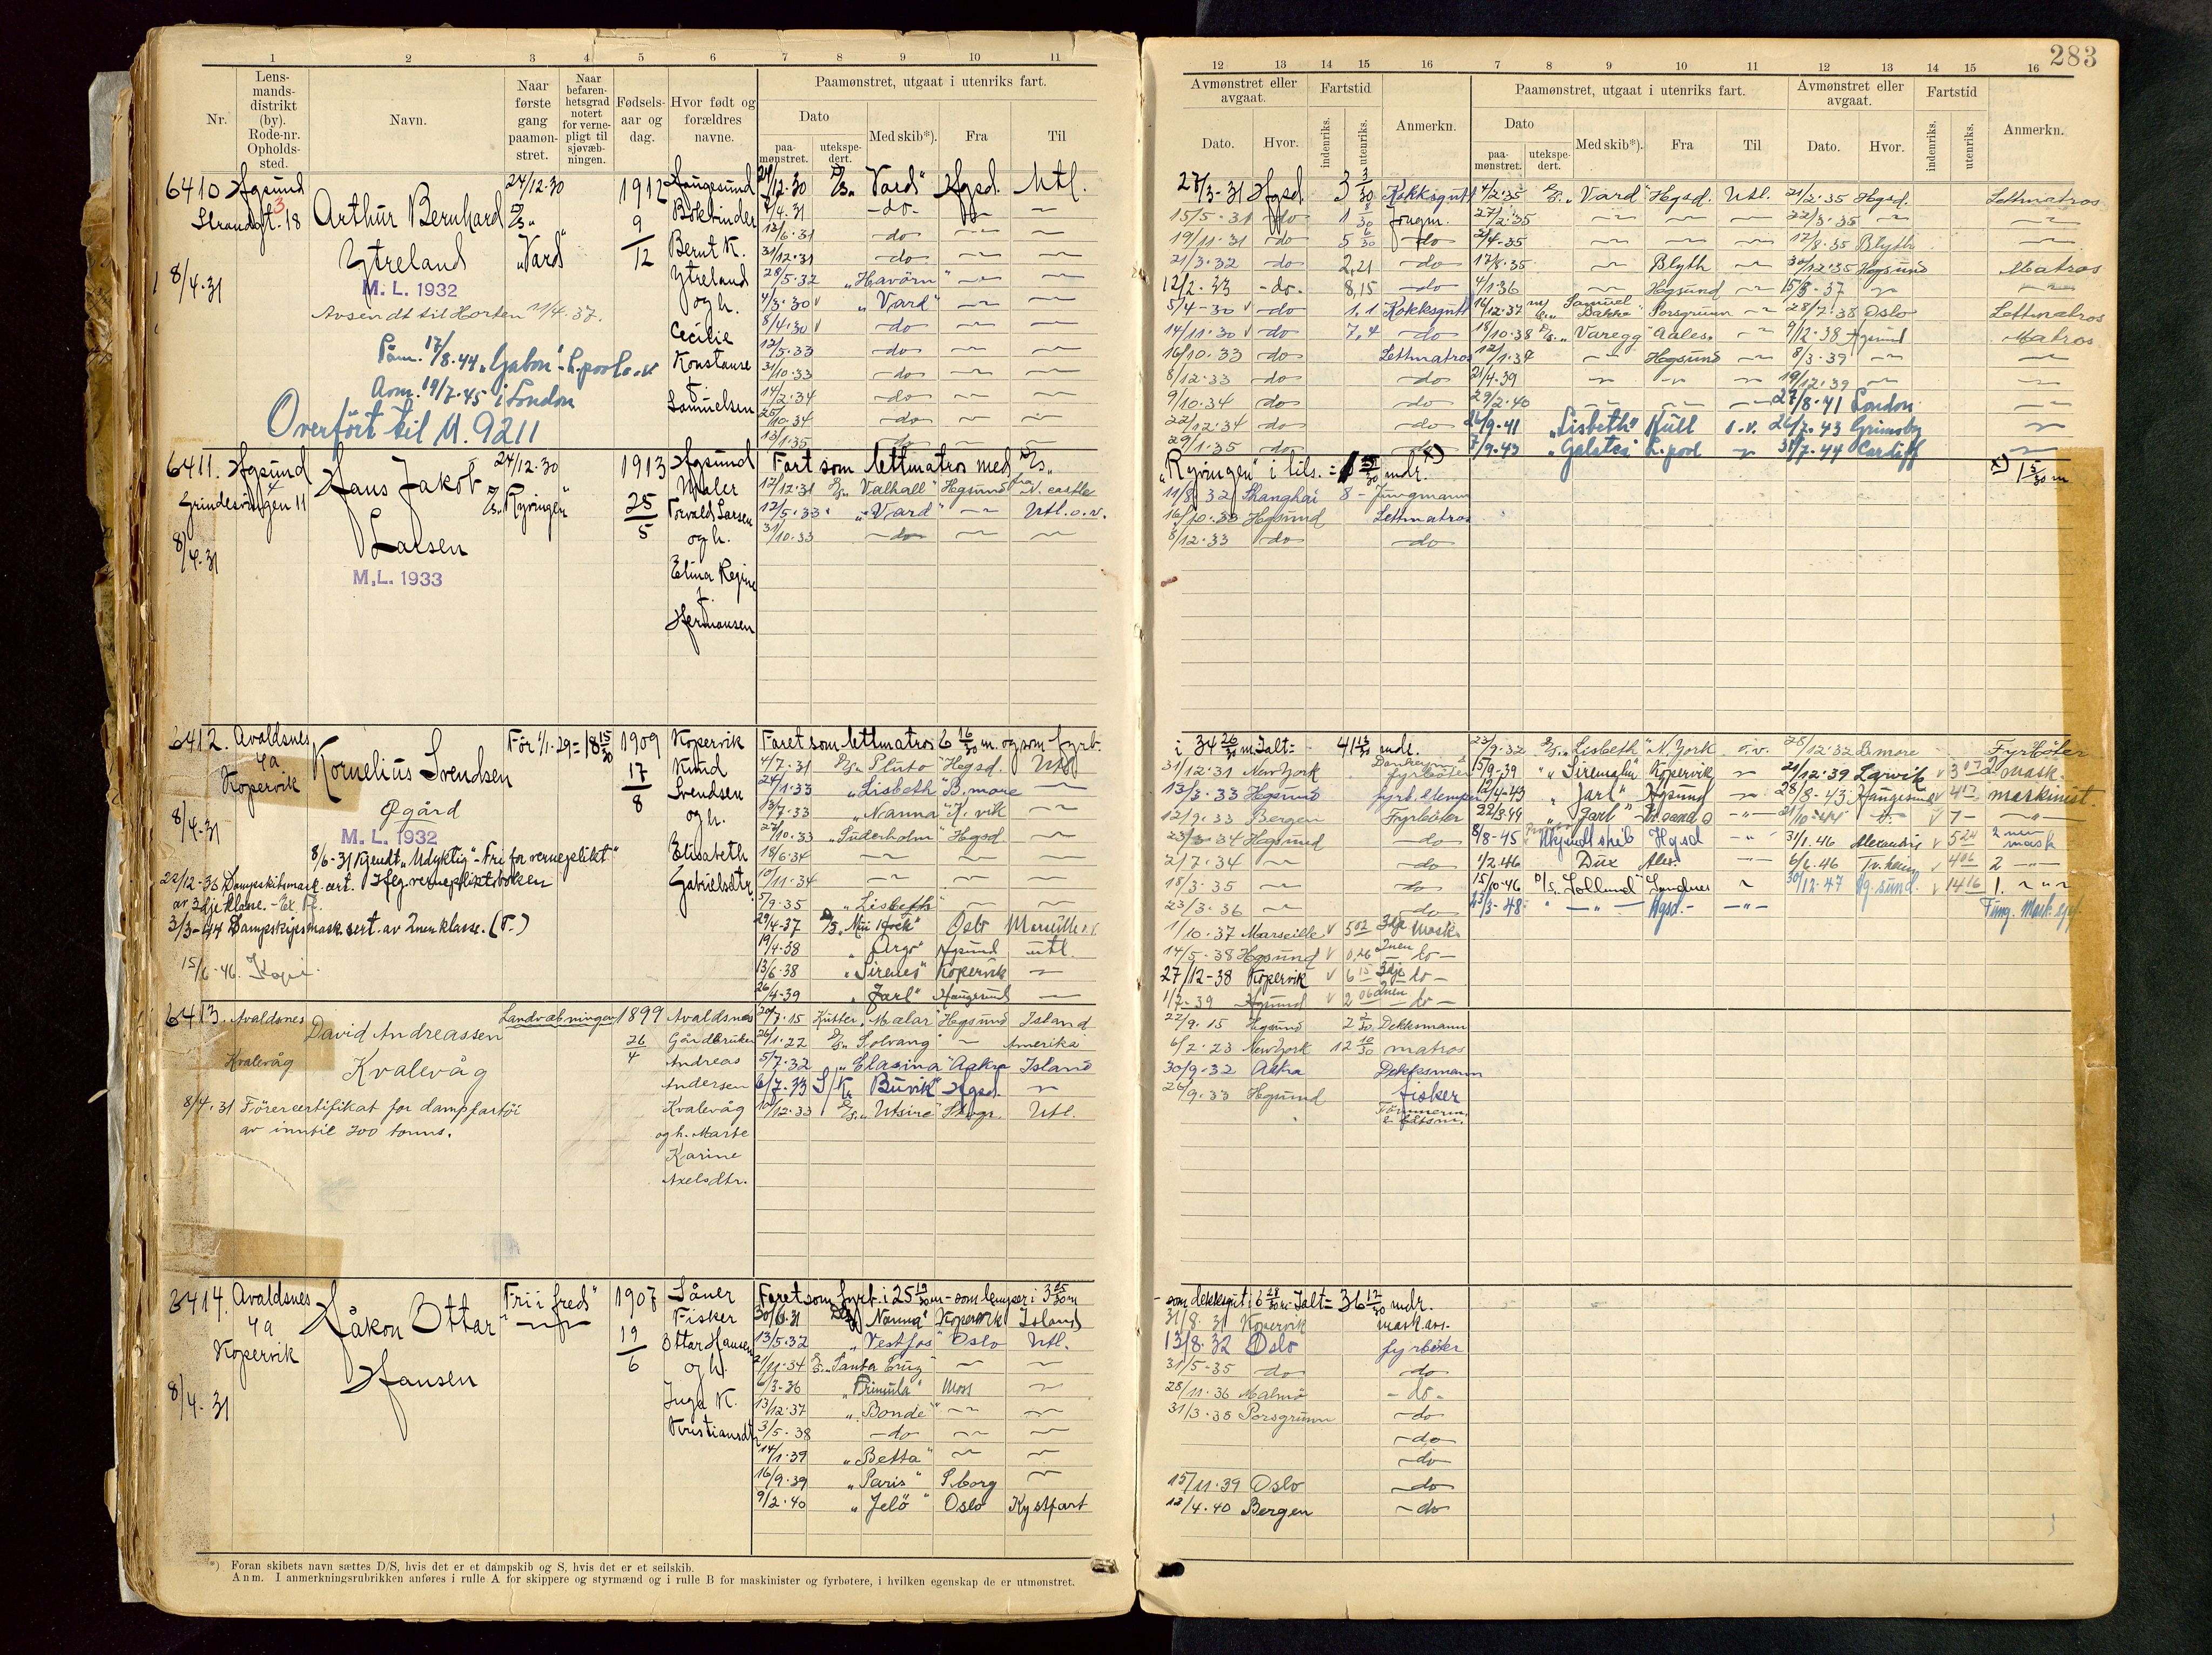 283
1 2 3 4 5 6 7 8 9 10 11
Nr.
Lens-
mands-
distrikt
(by).
Rode-nr.
Opholds-
sted.
Navn.
Naar
første
gang
paamøn-
stret.
Naar
befaren-
hetsgrad
notert
for verne-
pligt til
sjøvæb-
ningen.
Fødsels-
aar og
dag.
Hvor født og
forældres
navne.
Paamønstret, utgaat i utenriks fart.
Dato
paa-
mønstret.
utekspe-
dert.
Med skib*).
Fra
Til
6410 Hgsund
Strandgt. 18
8/4.31
Arthur Bernhard
Ytreland
M. L. 1932
Avsendt til Horten 11/4.37.
Påm. 17/8.44 "Gabon" L.pool o.v.
Avm. 19/7.45 i London
Overført til M. 9211
24/12.30
D/S "Vard"
1912
9/12
Haugesund
Bokbinder
Bernt K.
Ytreland
og h.
Cecilie
Konstanse
f.
Samuelsen
24/12.30 D/S "Vard" Hgsd. Utl.
7/4.31 -do-
12/6.31 -do-
31/12.31 -do-
28/5.32 "Havörn"
4/3.30 "Vard"
8/4.30 -do-
12/5.33 -do-
31/10.33 -do-
14/2.34 -do-
25/10.34 -do-
13/1.35 -do-
6411. Hgsund
Grindesvingen 11
8/4.31
Hans Jakob
Larsen
M.L. 1933
24/12.30
D/S "Ryvingen"
1913
25/5
Hgsund
Maler
Torvald Larsen
og h.
Elina Regine
f.
Hermansen
Fart som lettmatros med D/S
12/12.31 D/S "Valhall" Hgsund fra N. castle
12/5.33 "Vard" Utl. o.v.
31/10.33 -do-
6412. Avaldsnes
4a
Kopervik
8/4.31
Kornelius Svendsen
Øgård
M. L. 1932
8/6-31 Kjendt "Udyktig" - Fri for verneplikt
22/12-36 Dampskibsmask. cert. Hfg. vernepliktsboken
av 3dje klasse.
3/3-44 Dampskipsmask. sert. av 2nen klasse. (T.)
15/6-46. Kopi.
Før 1/1.29 = 18 15/30
1909
17/8
Kopervik
Knud
Svendsen
og h.
Elisabeth
Gabrielsdtr.
Faret som lettmatros 6 16/30 m. og som fyrb.
4/7.31 D/S "Pluto" Hgsd. Utl.
24/1.33 "Lisbeth" B. more
13/7.33 "Nanna" K. vik
27/10.33 "Suderholm" Hgsd.
18/6.34
10/11.34
5/9.35 "Lisbeth"
29/4-37 D/S "Min Flock" Oslo Marseille o.v.
19/4-38 "Argo" Hgsund utl.
13/6.38 "Sirenes" Kopervik
26/4-39 "Jarl" Haugesund
6413. Avaldsnes
Kvalevåg
David Andreassen
Kvalevåg
8/4.31 Förercertifikat for dampfartöi
av inntil 200 tonns.
Landvæbningen
1899
26/4
Avaldsnes
Gårdbruker
Andreas
Andersen
Kvalevåg
og h. Marte
Karine
Axelsdtr.
20/7.15 Kutter "Mælar" Hgsund Island
26/1.22 D/S "Solvang" Amerika
5/7.32 "Elasina" Aakra Island
6/7.33 S/K "Buvik" Hgsd.
10/12.33 D/S "Utsire" Skogr. Utl.
6414. Avaldsnes
4a
Kopervik
8/4-31
Håkon Ottar
Hansen
"Fri i fred"
1907
19/6
Såner
Fisker
Ottar Hansen
og h.
Inga K.
Kristiansdtr.
Faret som fyrb. i 25 19/30 m - som lemper i 3 25/30 m
30/6.31 "Nanna" Kopervik Island
13/5.32 "Vestfos" Oslo Utl.
21/11.34 D/S "Santa Cruz"
6/3-36 "Primula" Moss
13/12.37 "Bonde"
3/5.38 -do-
14/1.39 "Betta"
16/9.39 "Paris" S.borg
9/2.40 "Jelö" Oslo Kystfart
*) Foran skibets navn sættes D/S, hvis det er et dampskib og S, hvis det er et seilskib.
Anm. I anmerkningsrubrikken anføres i rulle A for skippere og styrmænd og i rulle B for maskinister og fyrbøtere, i hvilken egenskap de er utmønstret.
12 13 14 15 16 7 8 9 10 11 12 13 14 15 16
Avmønstret eller
avgaat.
Dato.
Hvor.
Fartstid
indenriks.
utenriks.
Anmerkn.
Paamønstret, utgaat i utenriks fart.
Dato
paa-
mønstret.
utekspe-
dert.
Med skib*).
Fra
Til
Avmønstret eller
avgaat.
Dato.
Hvor.
Fartstid
indenriks.
utenriks.
Anmerkn.
27/3-31 Hgsd. 3 3/30 Kokksgutt 4/2.35 D/S "Vard" Hgsd. Utl. 21/2.35 Hgsd. Lettmatros
15/5.31 -do- Jungm. 27/2.35 22/3.35
19/11.31 -do- 5 6/30 -do- 2/4-35 12/8.35 Blyth
21/3.32 -do- 2,21 -do- 17/8.35 Blyth 30/12.35 Hgsund Matros
12/2.33 -do- 8,15 -do- 4/1.36 Hgsund 15/3-37
5/4-30 -do- 1,1 Kokksgutt 16/12.37 "Samuel Bakke" Porsgrunn 28/7.38 Oslo Lettmatros
14/11.30 -do- 7,4 -do- 18/10.38 D/S "Varegg" Aales. 9/12.38 Hgsund Matros
16/10.33 -do- Lettmatros 12/1.39 Hgsund 8/3.39
8/12.33 -do- -do- 21/4.39 19/12.39
9/10.34 -do- -do- 29/2.40 27/8.41 London
22/12.34 -do- -do- 26/9.41 "Lisbeth" Hull o.v. 26/7.43 Grimsby
29/1.35 -do- -do- 7/9.43 "Galatea" L.pool 31/7.44 Cardiff
"Ryvingen" i tils. = mdr. x)
x) 1 3/30 m
11/8.32 Shanghai 8 - Jungmann
16/10.33 Hgsund Lettmatros
8/12.33 -do- -do-
i 34 26/30 m. Ialt = 41 mdr. 23/9.32 D/S "Lisbeth" N. York o.v. 28/12.32 B. more Fyrböter
31/12.31 New York Donkeym. & fyrböter 15/9-39 "Siremalm" Kopervik 21/12.39 Larvik 2. mask.
13/3.33 Hgsund fyrb. & lemper 12/4-43 "Jarl" Hgsund 28/8-43 Haugesund maskinist.
12/9.33 Bergen Fyrböter 22/3.44 "Jarl" 21/10-44 7-
23/3.34 Hgsund 8/8-45 Hgsd 31/1.46 Alexandria 5 24 2nen mask
2/7.34 -do- 1/2.46 Dux Alex. 6/6.46 Tr.heim 4 06 2
18/3.35 -do- 15/10-46 D/S "Lolland" Sandnes 30/12-47 Hg.sund 14 16 1.
23/3.36 -do- 23/3-48 Hgsd. Fung. Mask.
1/10.37 Marseille 5 02 3dje mask.
14/5-38 Hgsund 0,26 2nen do
27/12-38 Kopervik 6 15 3dje do
1/7-39 Hgsund 2 06 2nen do
22/9.15 Hgsund Dekksmann
6/2.23 New York 12 10/30 matros
30/9.32 Akra Dekksmann
26/9.33 Hgsund fisker
Tömmerm.
& båtsm.
- som dekksgut i 6 28/30 m. Ialt = 36 12/30 mdr.
31/8.31 Kopervik mask.ass.
13/8.32 Oslo fyrböter
31/5-35 -do- -do-
28/11.36 Malmö -do-
31/3.38 Porsgrunn -do-
-do-
-do-
15/11.39 Oslo -do-
12/4.40 Bergen -do-